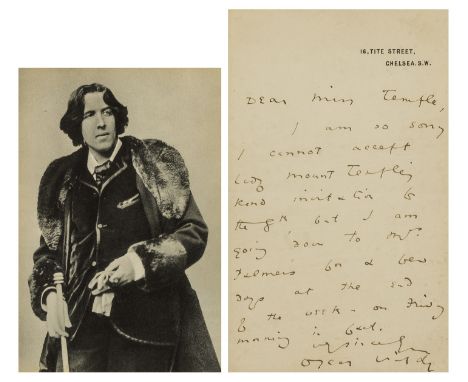 16, TITE STREET,
CHELSEA. S.W.
Dear Miss Temple,
I am so sorry
I cannot accept
Lady Mount Temple's
kind invitation for
the 8th but I am
going down to Mrs.
Palmer's for a few
days at the end
of the week - on Friday
morning in fact.
Oscar Wilde